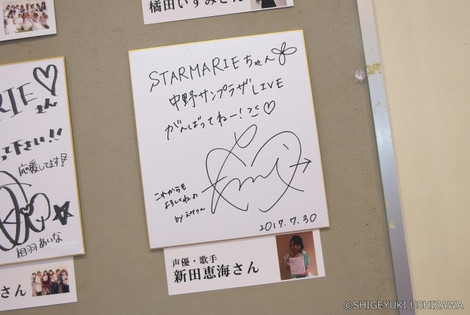 橘田いずみさん
STARMARIEちゃん
中野サンプラザLIVE
がんばってねー!
これからも
よろしくね♪
by えみつん
2017.7.30
声優・歌手
新田恵海さん
RIE♡
さん
って下さい!!
応援してます!
相羽あいな
さん
©SHIGEYUKI USHIZAWA